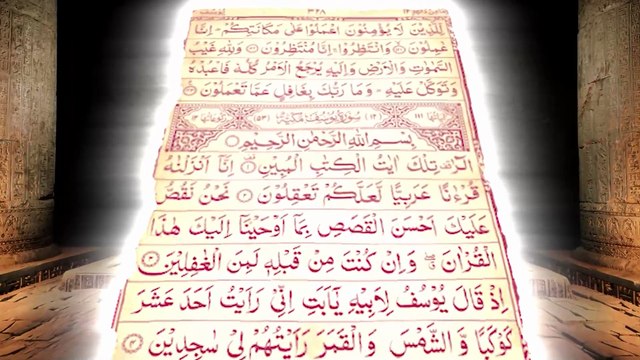 لِّلَّذِيْنَ لَا يُؤْمِنُوْنَ اعْمَلُوْا عَلٰى مَكَانَتِكُمْ ۖ اِنَّا
عٰمِلُوْنَ وَانْتَظِرُوْا ۚ اِنَّا مُنْتَظِرُوْنَ وَلِلّٰهِ غَيْبُ
السَّمٰوٰتِ وَالْاَرْضِ وَاِلَيْهِ يُرْجَعُ الْاَمْرُ كُلُّهٗ فَاعْبُدْهُ
وَتَوَكَّلْ عَلَيْهِ ۖ وَمَا رَبُّكَ بِغَافِلٍ عَمَّا تَعْمَلُوْنَ
اٰيَاتُهَا ١١١ (١٢) سُوْرَةُ يُوْسُفَ مَكِّيَّةٌ (٥٣)
بِسْمِ اللّٰهِ الرَّحْمٰنِ الرَّحِيْمِ
الٓرٰ تِلْكَ اٰيٰتُ الْكِتٰبِ الْمُبِيْنِ اِنَّآ اَنْزَلْنٰهُ
قُرْءٰنًا عَرَبِيًّا لَّعَلَّكُمْ تَعْقِلُوْنَ نَحْنُ نَقُصُّ
عَلَيْكَ اَحْسَنَ الْقَصَصِ بِمَآ اَوْحَيْنَآ اِلَيْكَ هٰذَا
الْقُرْاٰنَ ۖ وَاِنْ كُنْتَ مِنْ قَبْلِهٖ لَمِنَ الْغٰفِلِيْنَ ٣
اِذْ قَالَ يُوْسُفُ لِاَبِيْهِ يٰٓاَبَتِ اِنِّيْ رَاَيْتُ اَحَدَ عَشَرَ
كَوْكَبًا وَّالشَّمْسَ وَالْقَمَرَ رَاَيْتُهُمْ لِيْ سٰجِدِيْنَ